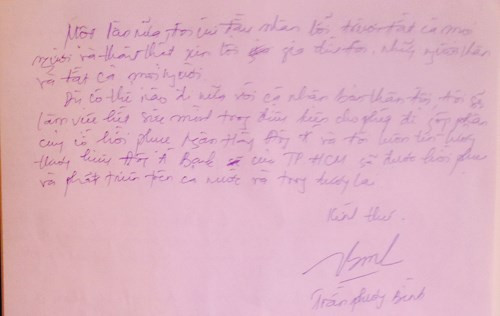 Một lần nữa, tôi cúi đầu nhận lỗi trước tất cả mọi
người và thành thật xin lỗi gia đình tôi, những người thân
và tất cả mọi người.
Dù có thế nào đi nữa với cá nhân bản thân tôi, tôi sẽ
làm việc hết sức mình trong điều kiện cho phép để góp phần
củng cố hồi phục Ngân Hàng Đông Á và tôi luôn tin tưởng
thương hiệu Đông Á Bank của TP HCM sẽ được hồi phục
và phát triển trên cả nước và trong tương lai
Kính thư.
Trần Phương Bình